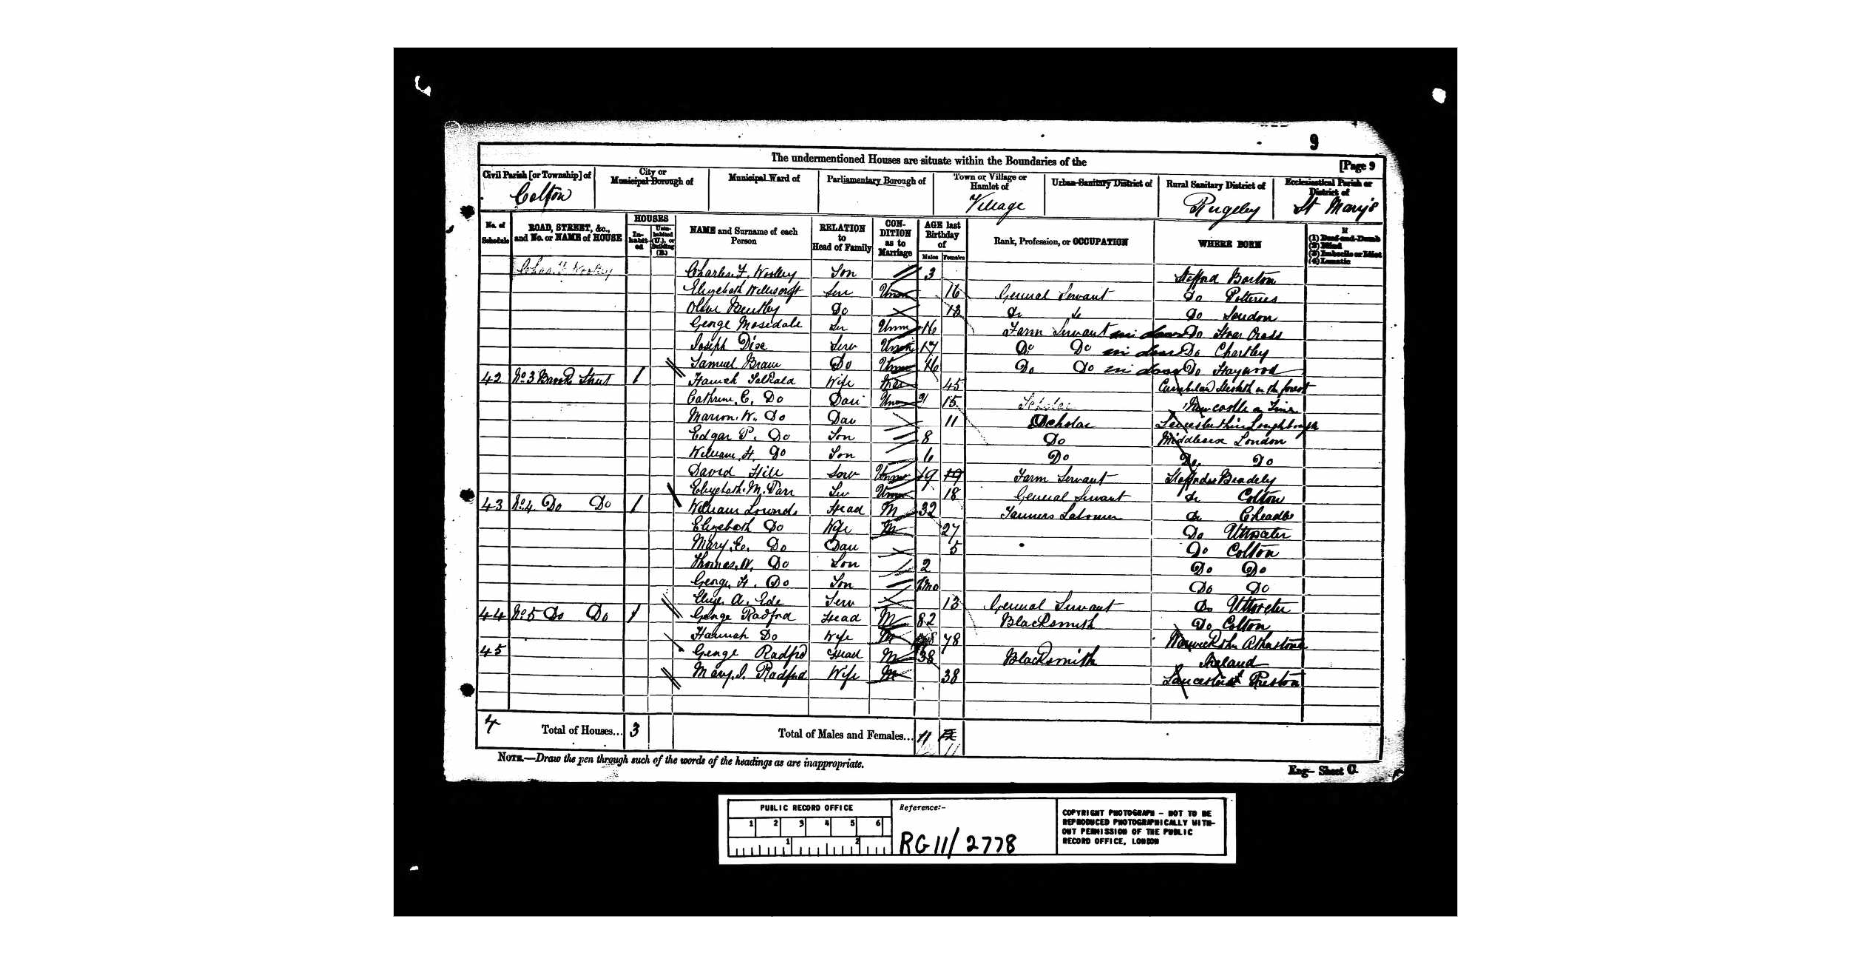 9
The undermentioned Houses are situate within the Boundaries of the
[Page 9
Civil Parish [or Township] of
City or Municipal Borough of
Municipal Ward of
Parliamentary Borough of
Town or Village or Hamlet of
Urban Sanitary District of
Rural Sanitary District of
Ecclesiastical Parish or District of
Colton Village Rugeley St Mary's
No. of Schedule
ROAD, STREET, &c., and No. or NAME of HOUSE
HOUSES
Inhabited
Uninhabited (U.), or Building (B.)
NAME and Surname of each Person
RELATION to Head of Family
CONDITION as to Marriage
AGE last Birthday of
Males Females
Rank, Profession, or OCCUPATION
WHERE BORN
If
(1) Deaf-and-Dumb
(2) Blind
(3) Imbecile or Idiot
(4) Lunatic
Charles F. Son 3 Barton
Elizabeth Serv 16 General Servant Do Potteries
Olive Bentley Do Do London
George Mosedale Unm 16 Farm Servant in door Do Hoar Cross
Joseph Serv 17 Do Do in door Do Chartley
Samuel Do 16 Do Do in door Do Haywood
42 No 3 Street 1 Hannah Wife Mar 45
Cathrine E. Do Dau 15 Scholar Newcastle
Marion W. Do Dau 11 Scholar Leicestershire Loughborough
Edgar P. Do Son 8 Do Middlesex London
William H. Do Son 6 Do Do Do
David Hill Serv 19 19 Farm Servant
Elizabeth M. Parr Ser 18 General Servant Colton
43 No 4 Do Do 1 William Lownds Head M 32 Tanners Labourer Do Cheadle
Elizabeth Do Wife M 27 Do Uttoxeter
Mary E. Do Dau 5 Do Colton
Thomas W. Do Son 2 Do Do
George H. Do Son 6mo Do Do
Eliza A. Serv 13 General Servant Do Uttoxeter
44 No 5 Do Do 1 George Radford Head M 82 Blacksmith Do Colton
Hannah Do Wife M 78 Atherstone
45 George Radford Head M 38 Blacksmith Ireland
Mary J. Radford Wife M 38 Preston
4 Total of Houses... 3 Total of Males and Females... 11 11
NOTE.—Draw the pen through such of the words of the headings as are inappropriate.
Eng— Sheet C.
PUBLIC RECORD OFFICE
1 2 3 4 5 6
1 2
Reference:-
RG 11/ 2778
COPYRIGHT PHOTOGRAPH - NOT TO BE
REPRODUCED PHOTOGRAPHICALLY WITH-
OUT PERMISSION OF THE PUBLIC
RECORD OFFICE, LONDON